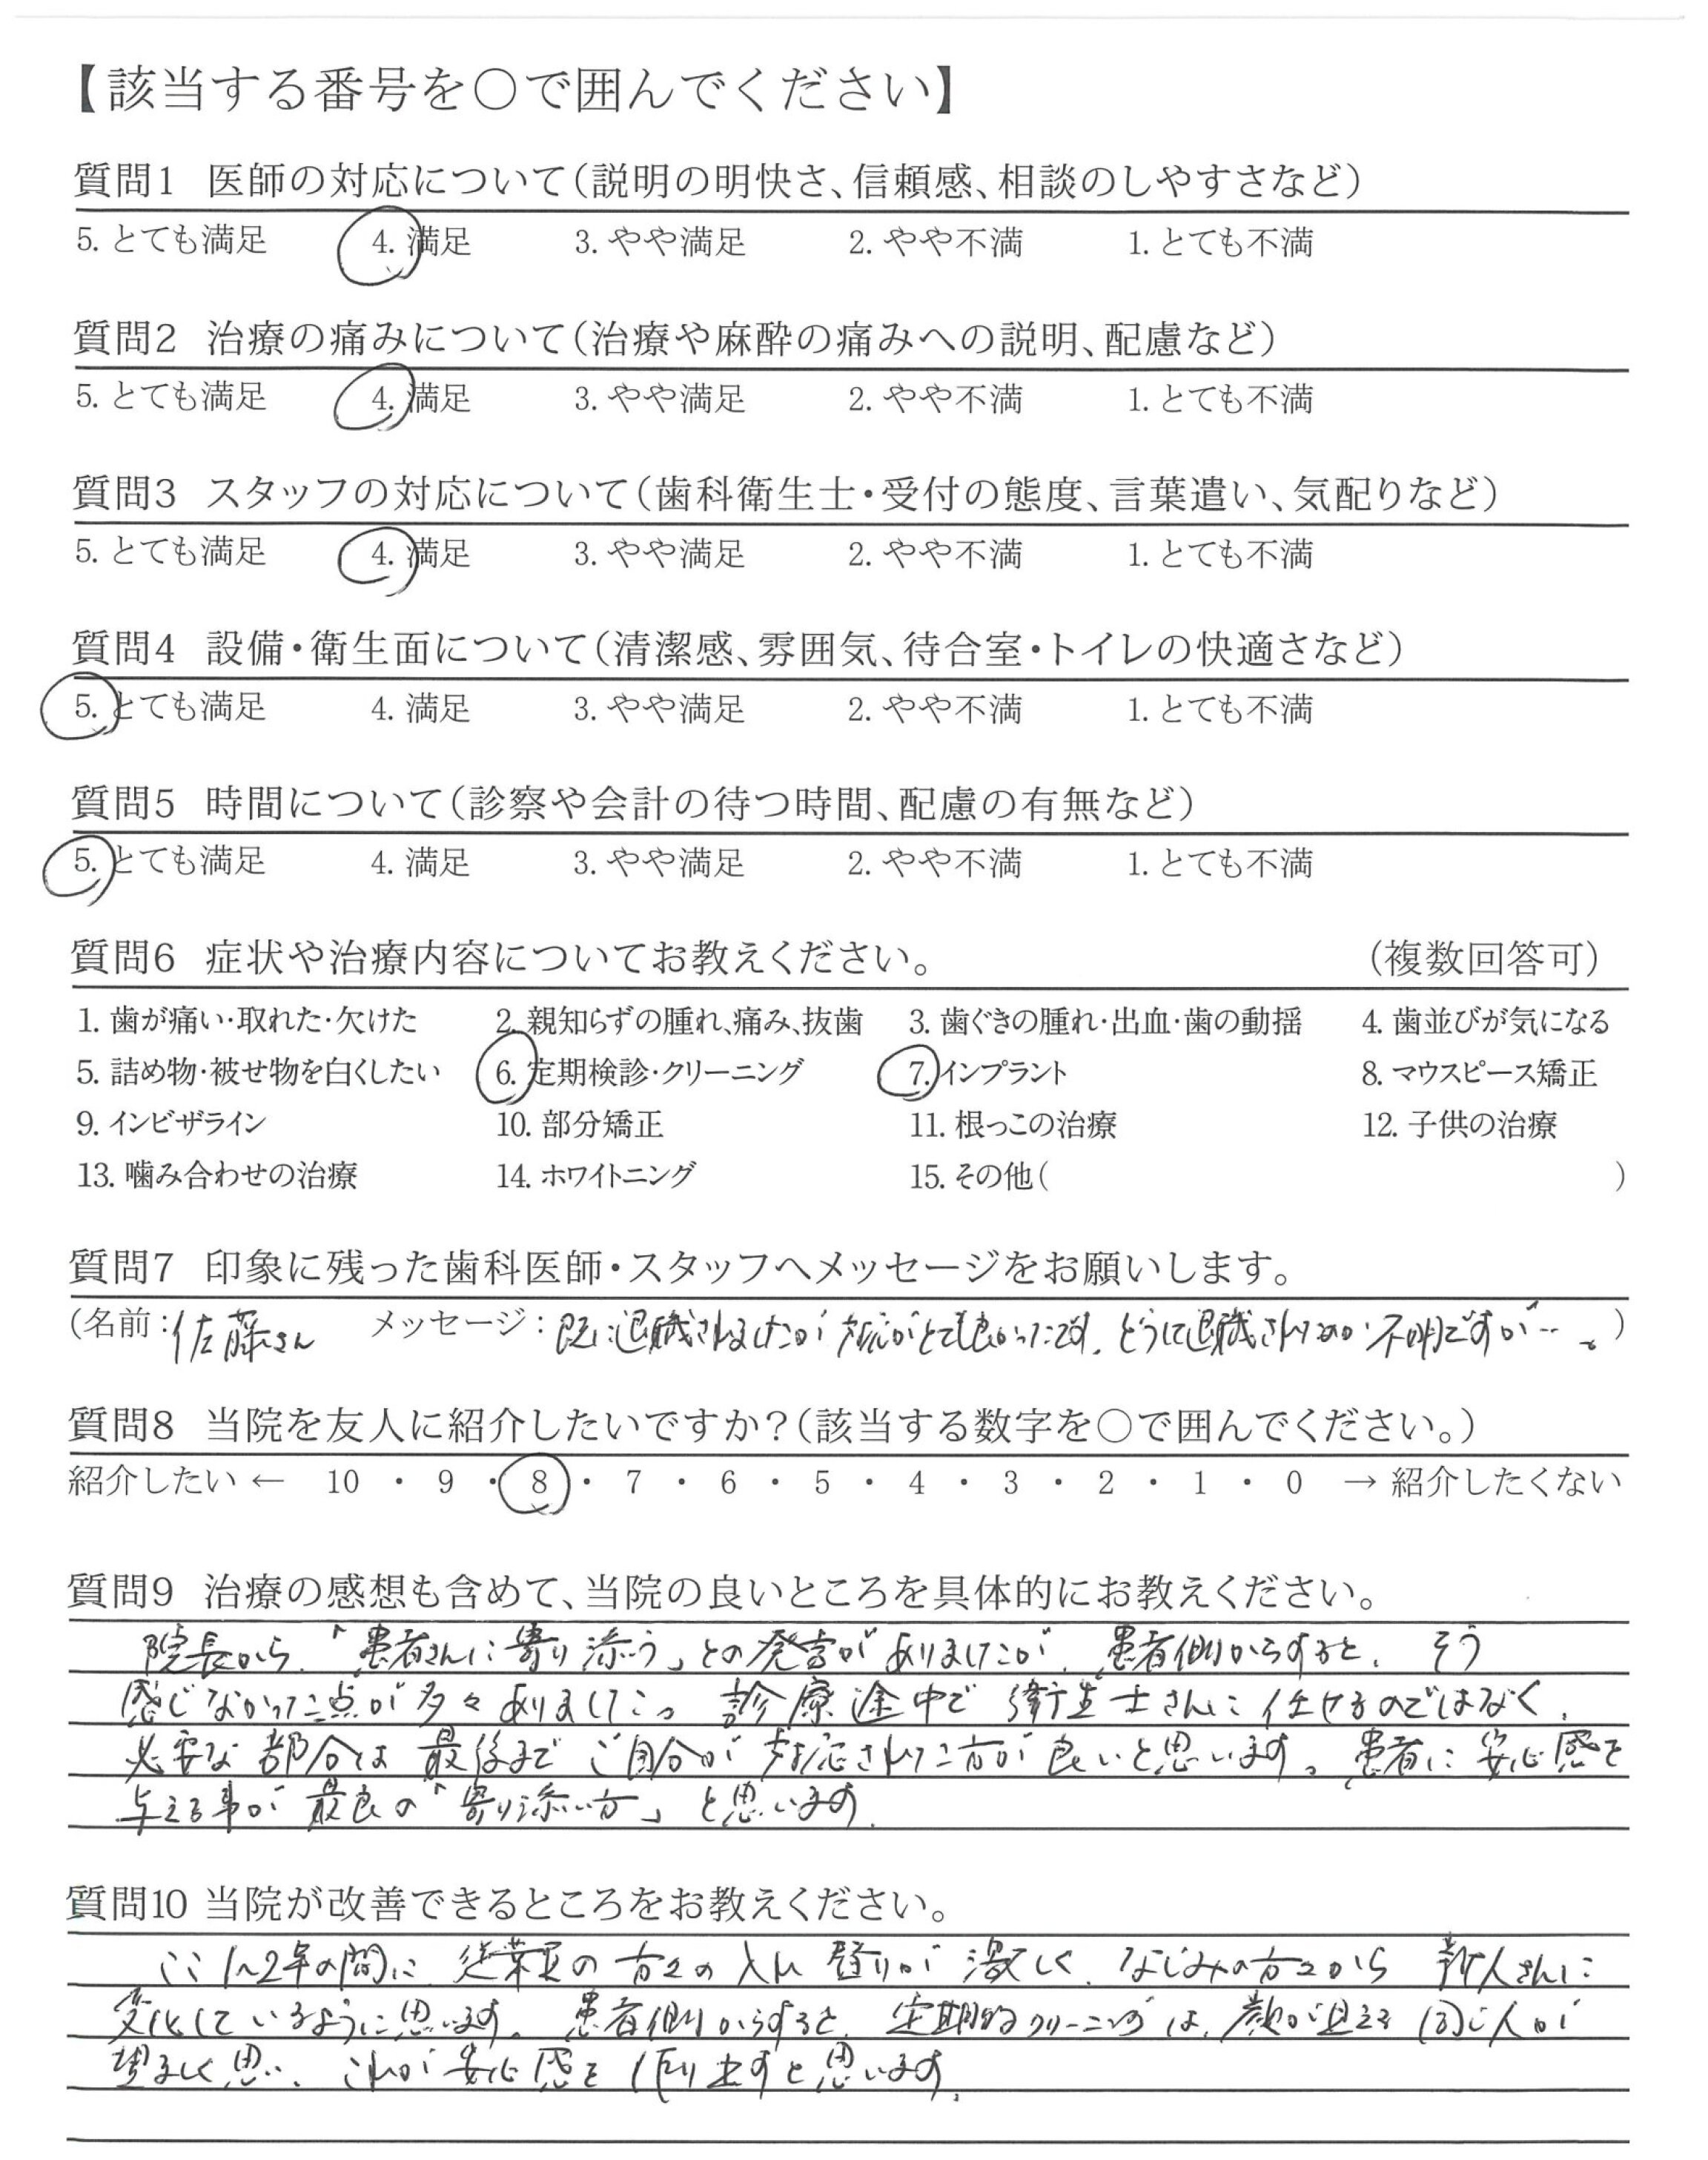 【該当する番号を○で囲んでください】
質問1 医師の対応について(説明の明快さ、信頼感、相談のしやすさなど)
5. とても満足 4. 満足 3. やや満足 2. やや不満 1. とても不満
質問2 治療の痛みについて(治療や麻酔の痛みへの説明、配慮など)
5. とても満足 4. 満足 3. やや満足 2. やや不満 1. とても不満
質問3 スタッフの対応について(歯科衛生士・受付の態度、言葉遣い、気配りなど)
5. とても満足 4. 満足 3. やや満足 2. やや不満 1. とても不満
質問4 設備・衛生面について(清潔感、雰囲気、待合室・トイレの快適さなど)
5. とても満足 4. 満足 3. やや満足 2. やや不満 1. とても不満
質問5 時間について(診察や会計の待つ時間、配慮の有無など)
5. とても満足 4. 満足 3. やや満足 2. やや不満 1. とても不満
質問6 症状や治療内容についてお教えください。 (複数回答可)
1. 歯が痛い・取れた・欠けた 2. 親知らずの腫れ、痛み、抜歯 3. 歯ぐきの腫れ・出血・歯の動揺 4. 歯並びが気になる
5. 詰め物・被せ物を白くしたい 6. 定期検診・クリーニング 7. インプラント 8. マウスピース矯正
9. インビザライン 10. 部分矯正 11. 根っこの治療 12. 子供の治療
13. 噛み合わせの治療 14. ホワイトニング 15. その他( )
質問7 印象に残った歯科医師・スタッフへメッセージをお願いします。
(名前:佐藤さん メッセージ:既に退職されましたが対応がとても良かったです。どうして退職されたのか不明ですが…。)
質問8 当院を友人に紹介したいですか?(該当する数字を○で囲んでください。)
紹介したい ← 10 ・ 9 ・ 8 ・ 7 ・ 6 ・ 5 ・ 4 ・ 3 ・ 2 ・ 1 ・ 0 → 紹介したくない
質問9 治療の感想も含めて、当院の良いところを具体的にお教えください。
院長から、「患者さんに寄り添う」との発言がありましたが、患者側からすると、そう
感じなかった点が多々ありました。診療途中で衛生士さんに任せるのではなく、
必要な部分は最後までご自分が対応された方が良いと思います。患者に安心感を
与える事が最良の「寄り添い方」と思います。
質問10 当院が改善できるところをお教えください。
ここ1〜2年の間に従業員の方々の入れ替りが激しく、なじみの方々から新人さんに
変化しているように思います。患者側からすると、定期的クリーニングは、顔が見える同じ人が
望ましく思い、これが安心感を作り出すと思います。